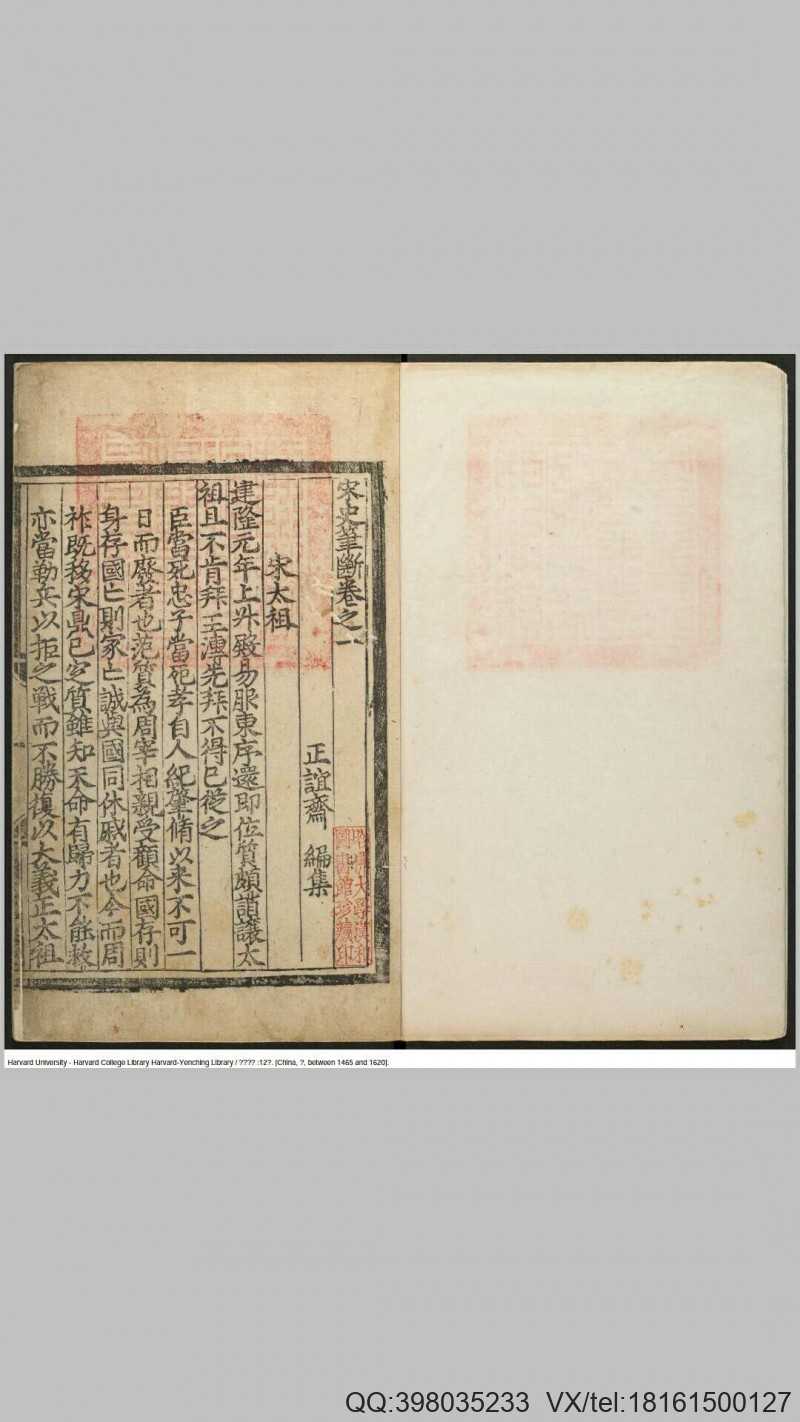 宋史筆斷卷之一
正誼齋 編集
宋太祖
建隆元年上升殿易服東序還即位質頗誚讓太
祖且不肯拜王溥先拜不得已從之
臣當死忠子當死孝自人紀肇脩以来不可一
日而廢者也范質為周宰相親受顧命國存則
身存國亡則家亡誠與國同休戚者也今而周
祚既移宋鼎已定質雖知天命有歸力不能救
亦當勒兵以拒之戰而不勝復以大義正太祖
Harvard University - Harvard College Library Harvard-Yenching Library / ???? :12?. [China, ?, between 1465 and 1620].
QQ:398035233 VX/tel:18161500127